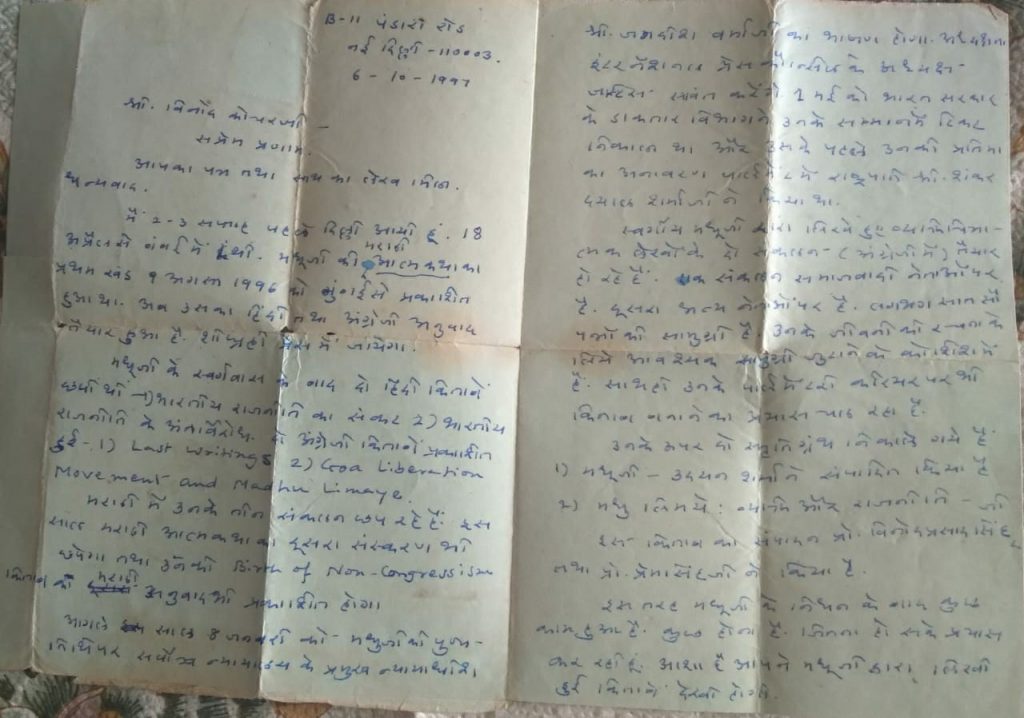 B-11 पंडारा रोड
नई दिल्ली -110003.
6-10-1997
श्री. विनोद कोचरजी -
सप्रेम प्रणाम.
आपका पत्र तथा साथ का लेख मिला.
धन्यवाद.
मैं 2-3 सप्ताह पहले दिल्ली आयी हूं. 18
अप्रैल से बंबई में थी. मधुजी की मराठी आत्मकथा का
प्रथम खंड 1 अगस्त 1996 को मुंबई से प्रकाशित
हुआ था. अब उसका हिंदी तथा अंग्रेजी अनुवाद
तैयार हुआ है. शीघ्रही प्रेस में जायेगा.
मधुजी के स्वर्गवास के बाद दो हिंदी किताबें
छपी थी -1) भारतीय राजनीति का संकट 2) भारतीय
राजनीति के अंतर्विरोध. दो अंग्रेजी किताबें प्रकाशित
हुई- 1) Last Writings 2) Goa Liberation
Movement and Madhu Limaye.
मराठी में उनके तीन संकलन छप रहे हैं. इस
साल मराठी आत्मकथा का दूसरा संस्करण भी
छपेगा तथा उनकी Birth of Non-Congressism
किताब का मराठी अनुवाद भी प्रकाशित होगा
अगले साल 8 जनवरी को - मधुजी की पुण्य-
तिथिपर सर्वोच्च न्यायालय के प्रमुख न्यायाधीश
श्री. जगदीश वर्माजी का भाषण होगा. अध्यक्षता
इंटरनॅशनल प्रेस कौन्सिल के अध्यक्ष -
जस्टिस सावंत करेंगे 1 मई को भारत सरकार
के डाकतार विभागने उनके सम्मानमें टिकट
निकाला था और उसके पहले उनकी प्रतिमा
का अनावरण पार्लमेंट में राष्ट्रपति श्री. शंकर
दयाल शर्माजी ने किया था.
स्वर्गीय मधुजी द्वारा लिखे हुए
लेखों के दो संकलन - (अंग्रेजी में) तैयार
हो रहे हैं. एक संकलन समाजवादी नेताओंपर
है. दूसरा अन्य नेताओंपर है. लगभग सात सौ
पन्नों की सामुग्री है. उनके जीवनी की रचना के
लिये आवश्यक सामुग्री जुटाने के कोशिश में
हूं. साथही उनके पार्लमेंटरी करियर पर भी
किताब बनाने का प्रयास चल रहा है.
उनके ऊपर दो स्मृतिग्रंथ निकाले गये हैं
1) मधुजी - उदयन शर्माने संपादित किया है
2) मधु लिमये : व्यक्ति और राजनीति - जी
इस किताब का संपादन प्रो. विनोदप्रसाद सिंह
तथा प्रो. प्रेमसिंहजी ने किया है.
इस तरह मधुजी के निधन के बाद कुछ
काम हुआ है. कुछ होना है. जितना हो सके प्रयास
कर रही हूं. आशा है आपने मधुजी द्वारा लिखी
हुई किताबें देखी होगी.